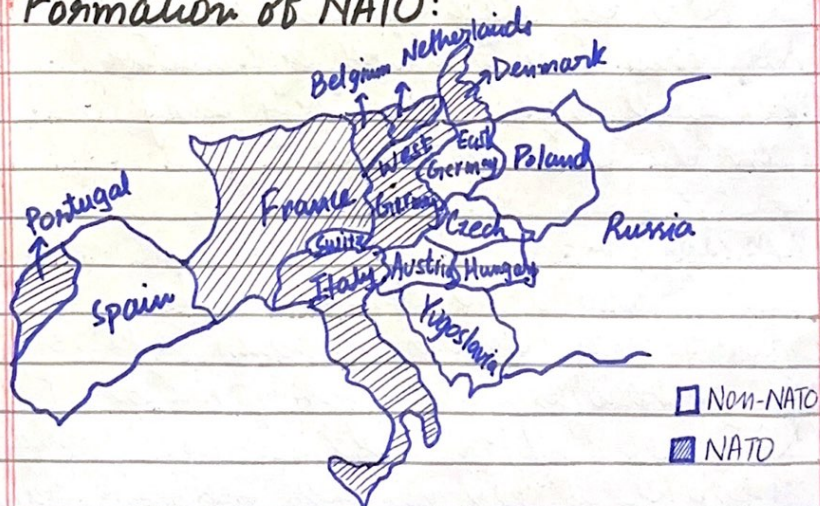 Formation of NATO:
Belgium Netherlands
Denmark
West
East
Germany
Poland
Portugal
France
Germany
Czech
Russia
Switz
Italy
Austria
Hungary
Spain
Yugoslavia
Non-NATO
NATO